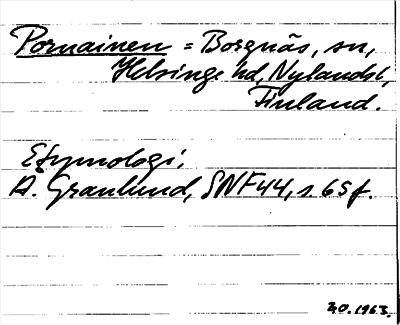 Pornainen = Borgnäs, sn,
Helsinge hd, Nylandsl,
Finland.
Etymologi.
Å. Granlund, SNF 44, s. 65 f.
30.1963.